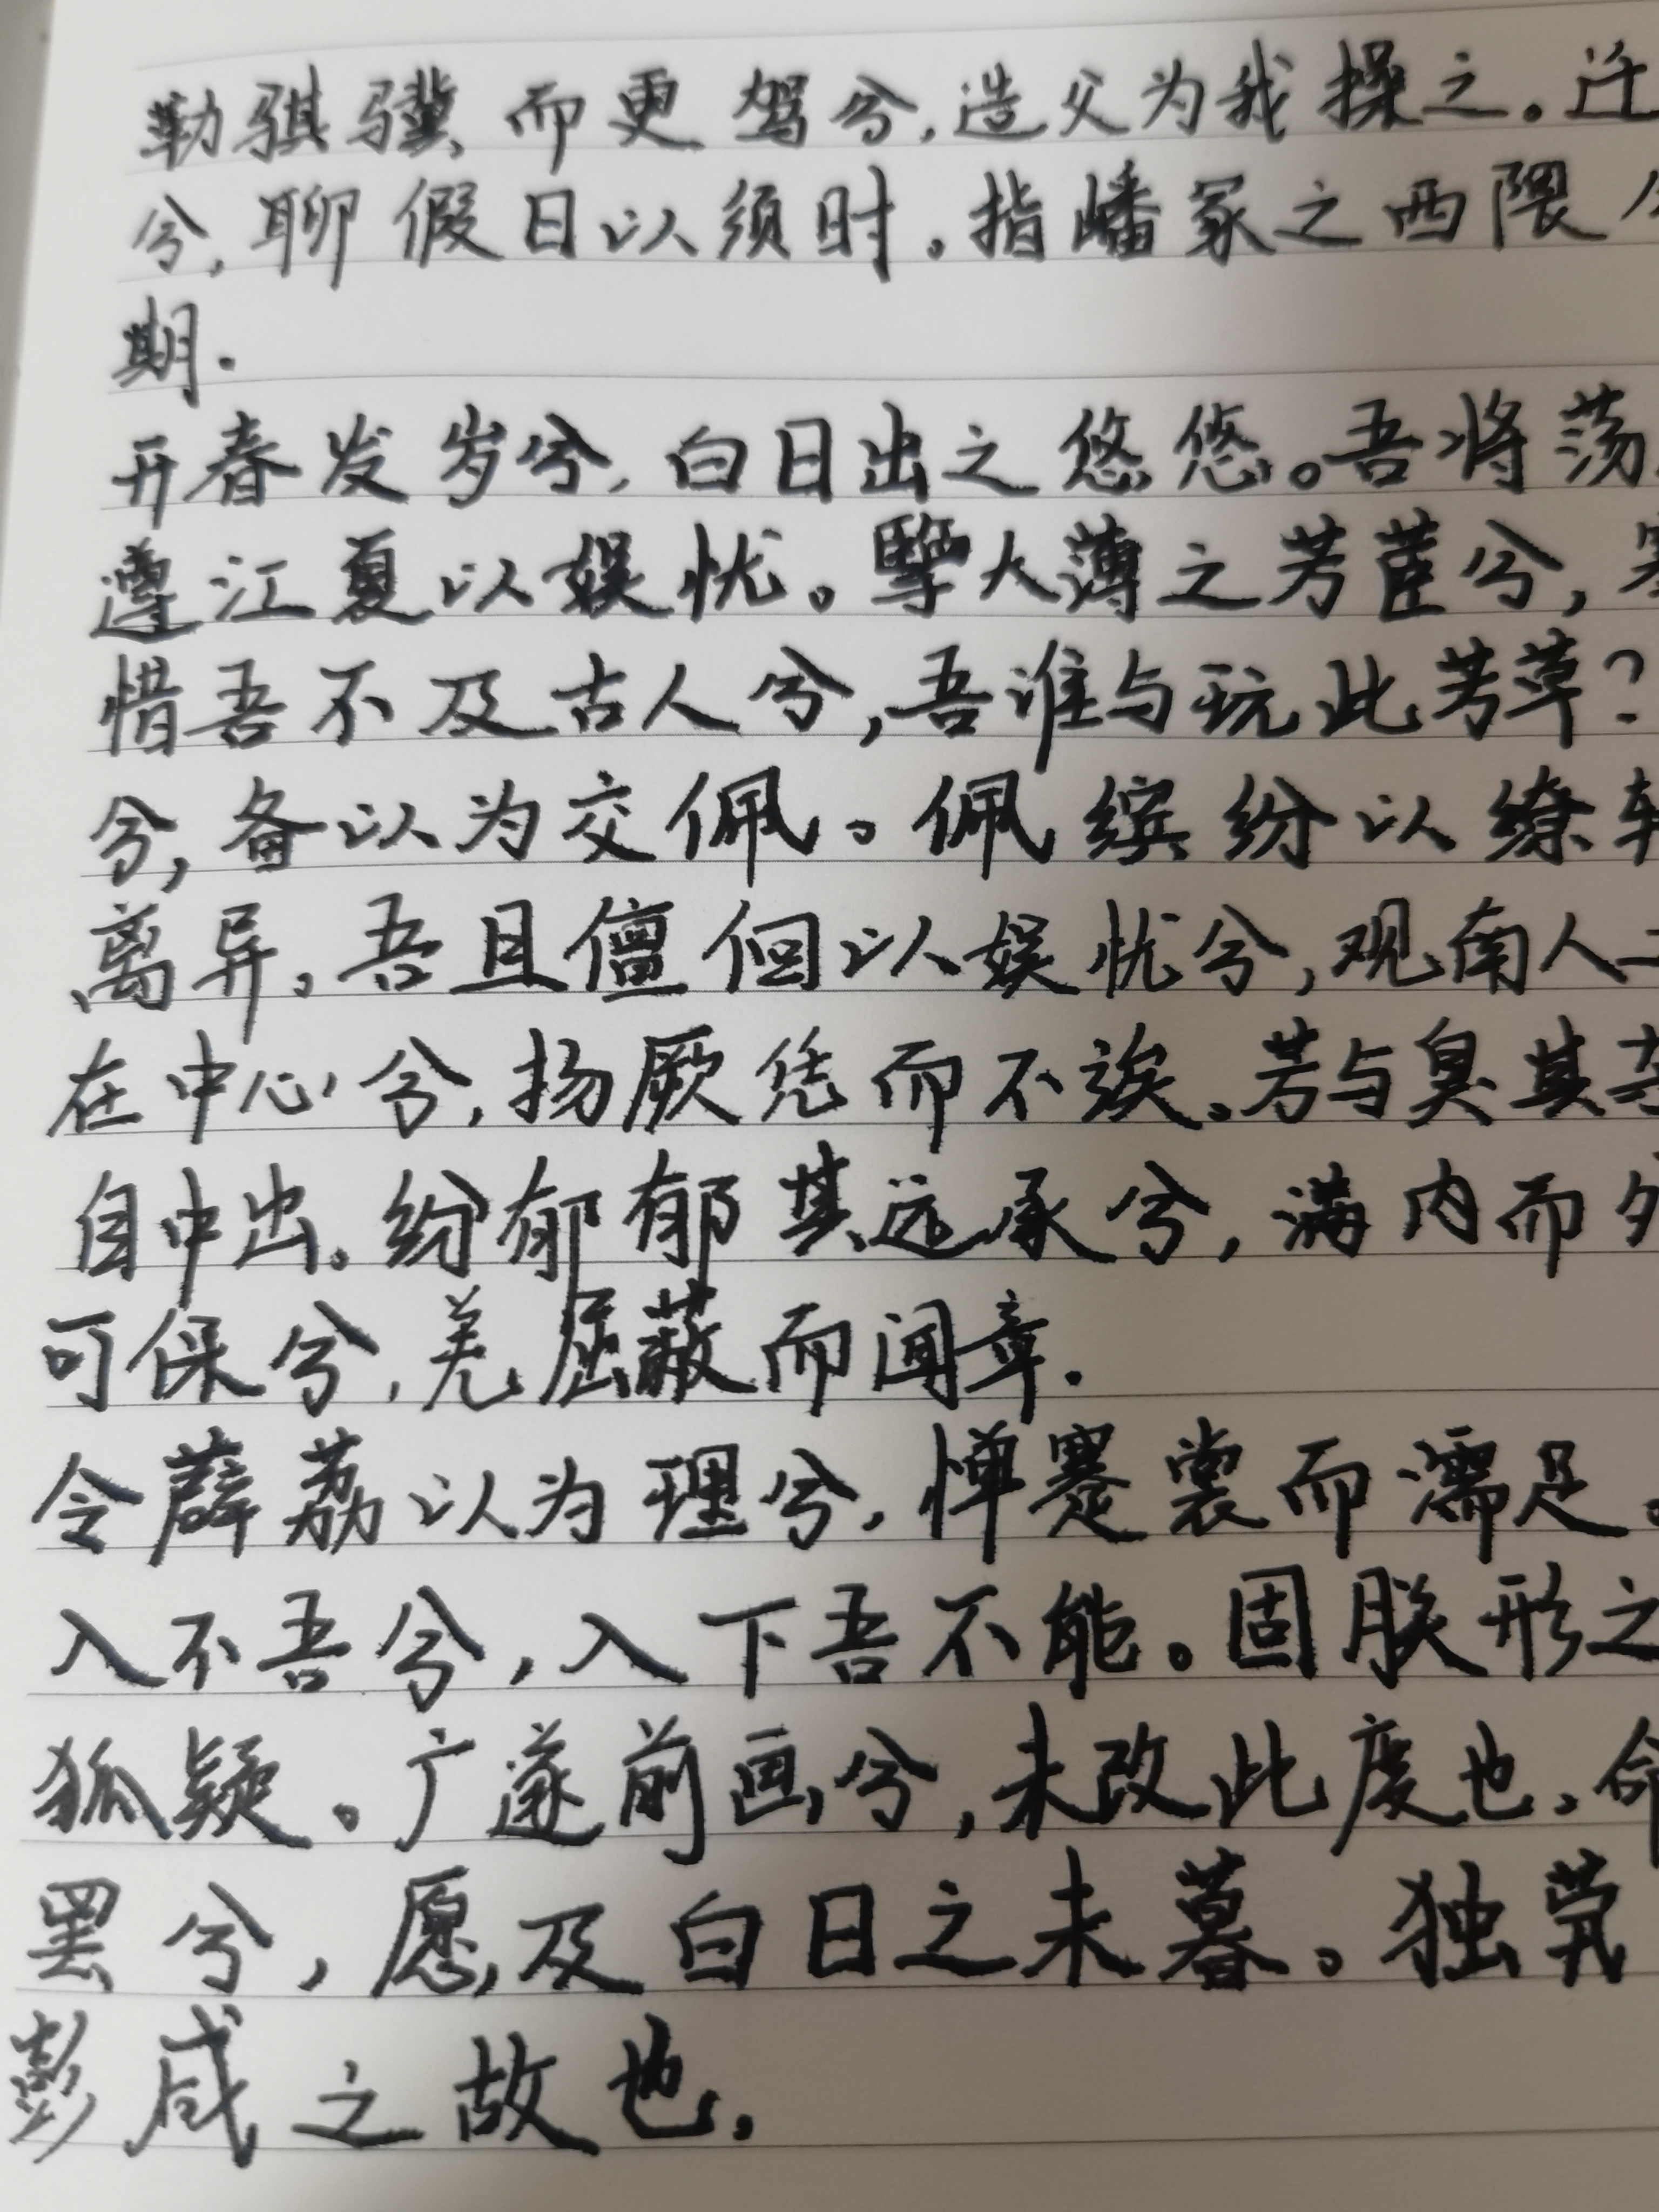 勒骐骥而更驾兮,造父为我操之。迁
兮,聊假日以须时。指嶓冢之西隈
期.
开春发岁兮,白日出之悠悠。吾将荡
遵江夏以娱忧。擥大薄之芳茝兮,
惜吾不及古人兮,吾谁与玩此芳草?
兮,备以为交佩。佩缤纷以缭
离异。吾且儃佪以娱忧兮,观南人
在中心兮,扬厥凭而不竢。芳与臭其
自中出。纷郁郁其远承兮,满内而外
可保兮,羌居蔽而闻章.
令薜荔以为理兮,惮蹇裳而濡足。
入不吾兮,入下吾不能。固朕形之
狐疑。广遂前画兮,未改此度也,命
罢兮,愿及白日之未暮。独茕
彭咸之故也,